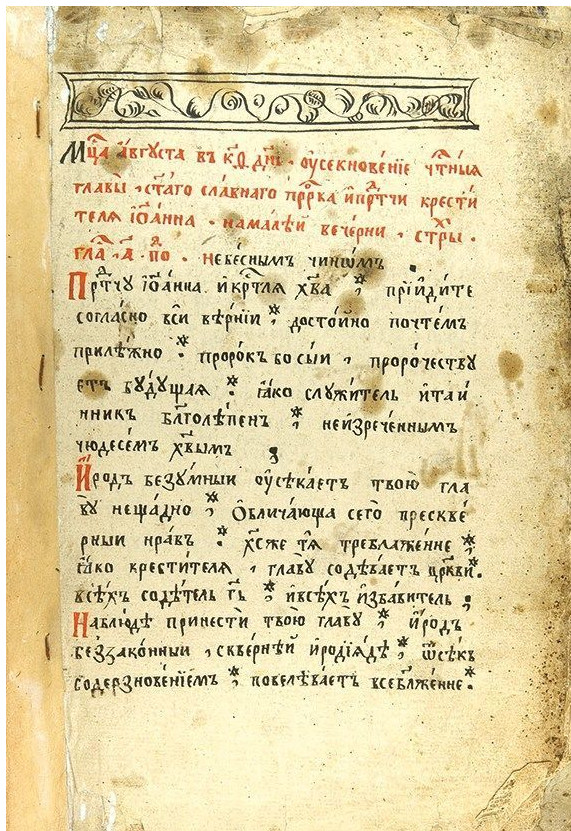 Мц҃а а҆́вгꙋста въ к҃ѳ. дн҃ь · ᲂу҆секнове́нїе чⷭ҇тныѧ
главы̀ · ст҃а́го сла́внаго прⷪ҇рка и҆прⷣтчи крести́
телѧ і҆ѡа́нна · намалѣ́й вече́рни · стⷯры ·
гла́ · а҃ · поⷣ · небе́снымъ чинѡ́мъ
Прⷣтчꙋ і҆ѡа́нна и҆крⷭ҇тлѧ хв҃а ⁘ прїиди́те
согла́сно всѝ вѣ́рнїи ⁘ досто́йно почте́мъ
прилѣ́жно ⁘ проро́къ бо сы́й , проро́чествꙋ
етъ бꙋ́дꙋщаѧ ⁘ ꙗ҆́ко слꙋжи́тель и҆таи́
нникъ бл҃голѣ́пенъ ⁘ неизрече́ннымъ
чюдесе́мъ хв҃ымъ ⁘
И҆́родъ безꙋ́мныи ᲂу҆сѣка́етъ твою̀ гла
вꙋ̀ неща́дно ⁘ Ѡ҆блича́юща сего̀ прескве́
рныи нра́въ ⁘ хс҃же тѧ̀ требла́женне ⁘
ꙗ҆́ко крести́телѧ , главꙋ̀ содѣ́ваетъ цр҃кви ⁘
всѣ́хъ содѣ́тель гь҃ ⁘ и҆всѣ́хъ и҆зба́витель ;
Наблю́дѣ принестѝ твою̀ главꙋ̀ ⁘ и҆́родъ
беззако́нныи , скве́рнѣй и҆родїѧ́дѣ ⁘ ѿсѣ́къ
содерзнове́нїемъ ⁘ повелѣ́ваетъ всебл҃женне ⁘